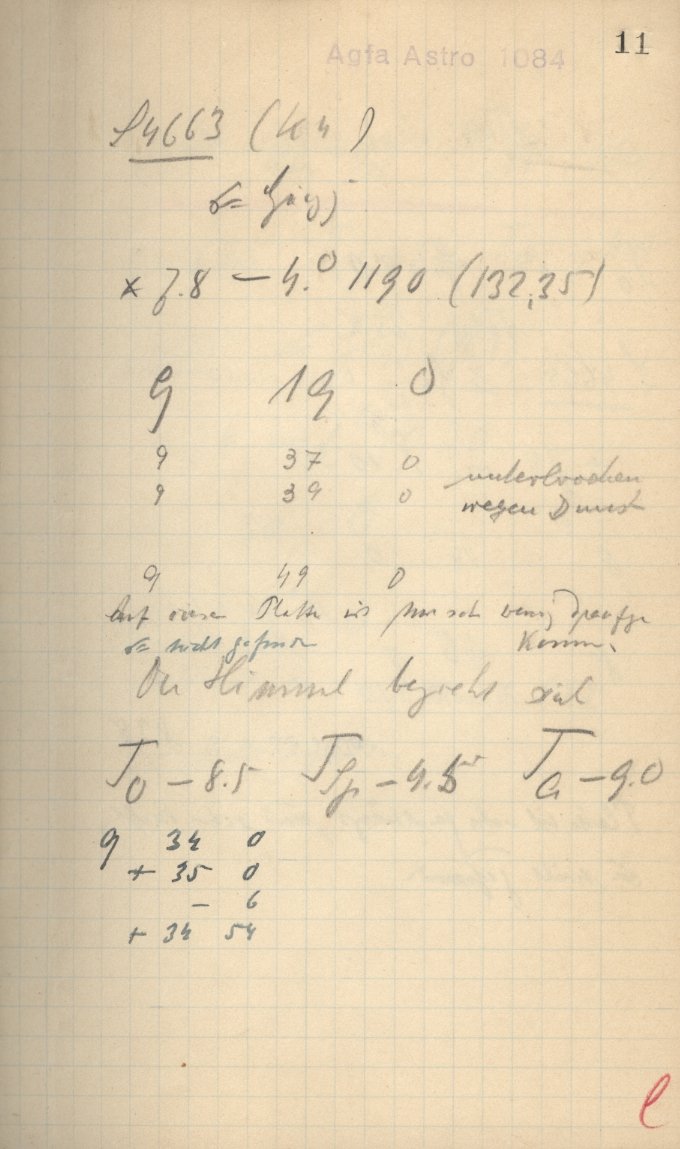 11
Agfa Astro 1084
4663 (
× 7.8 – 4.0 1190 (132,35)
9 19 0
9 37 0 unterbrochen
9 39 0 wegen Dunst
9 49 0
Auf dieser Platte ist nur sehr wenig draufge
nicht gefunden Komm.
Der Himmel bezieht sich
T0 – 8.5 TSp – 9.5 Ta – 9.0
9 34 0
+ 35 0
– 6
+ 34 54
e